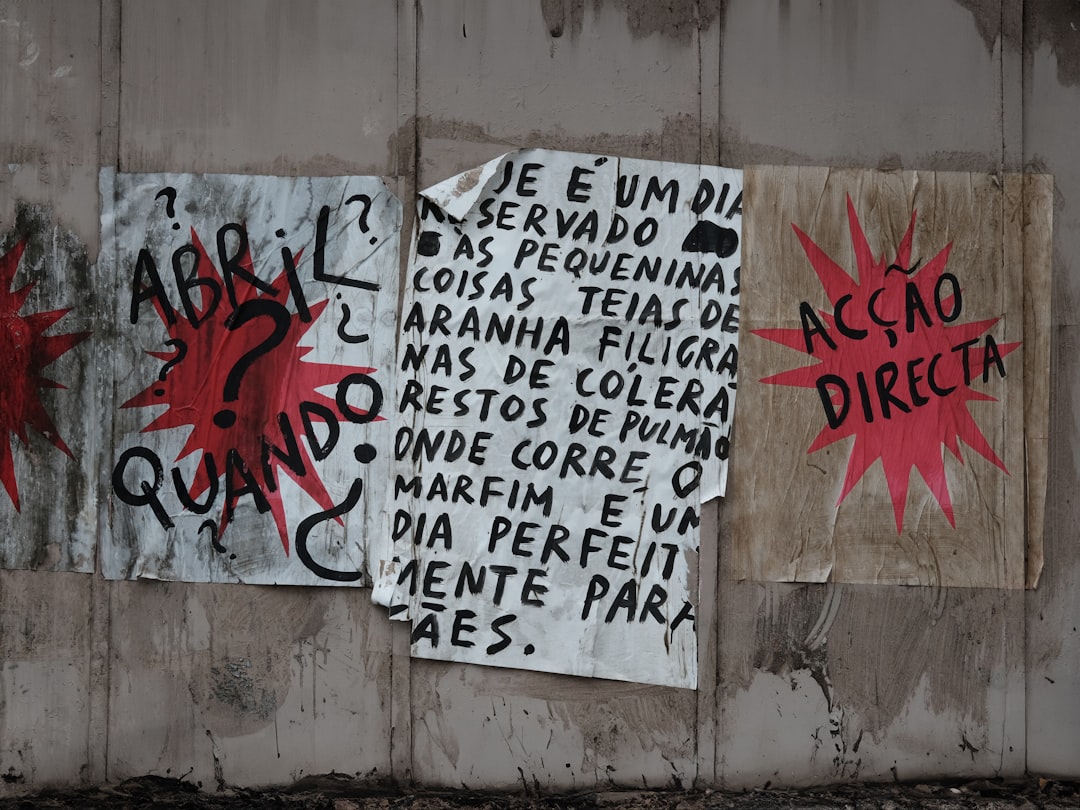 ?
?
ABRIL
?
?
?
QUANDO
?
¿
JE É UM DIA
RESERVADO
AS PEQUENINAS
COISAS TEIAS DE
ARANHA FILIGRA
NAS DE CÓLERA
RESTOS DE PULMÃO
ONDE CORRE O
MARFIM E UM
DIA PERFEIT
MENTE PARA
ÃES.
ACÇÃO
DIRECTA